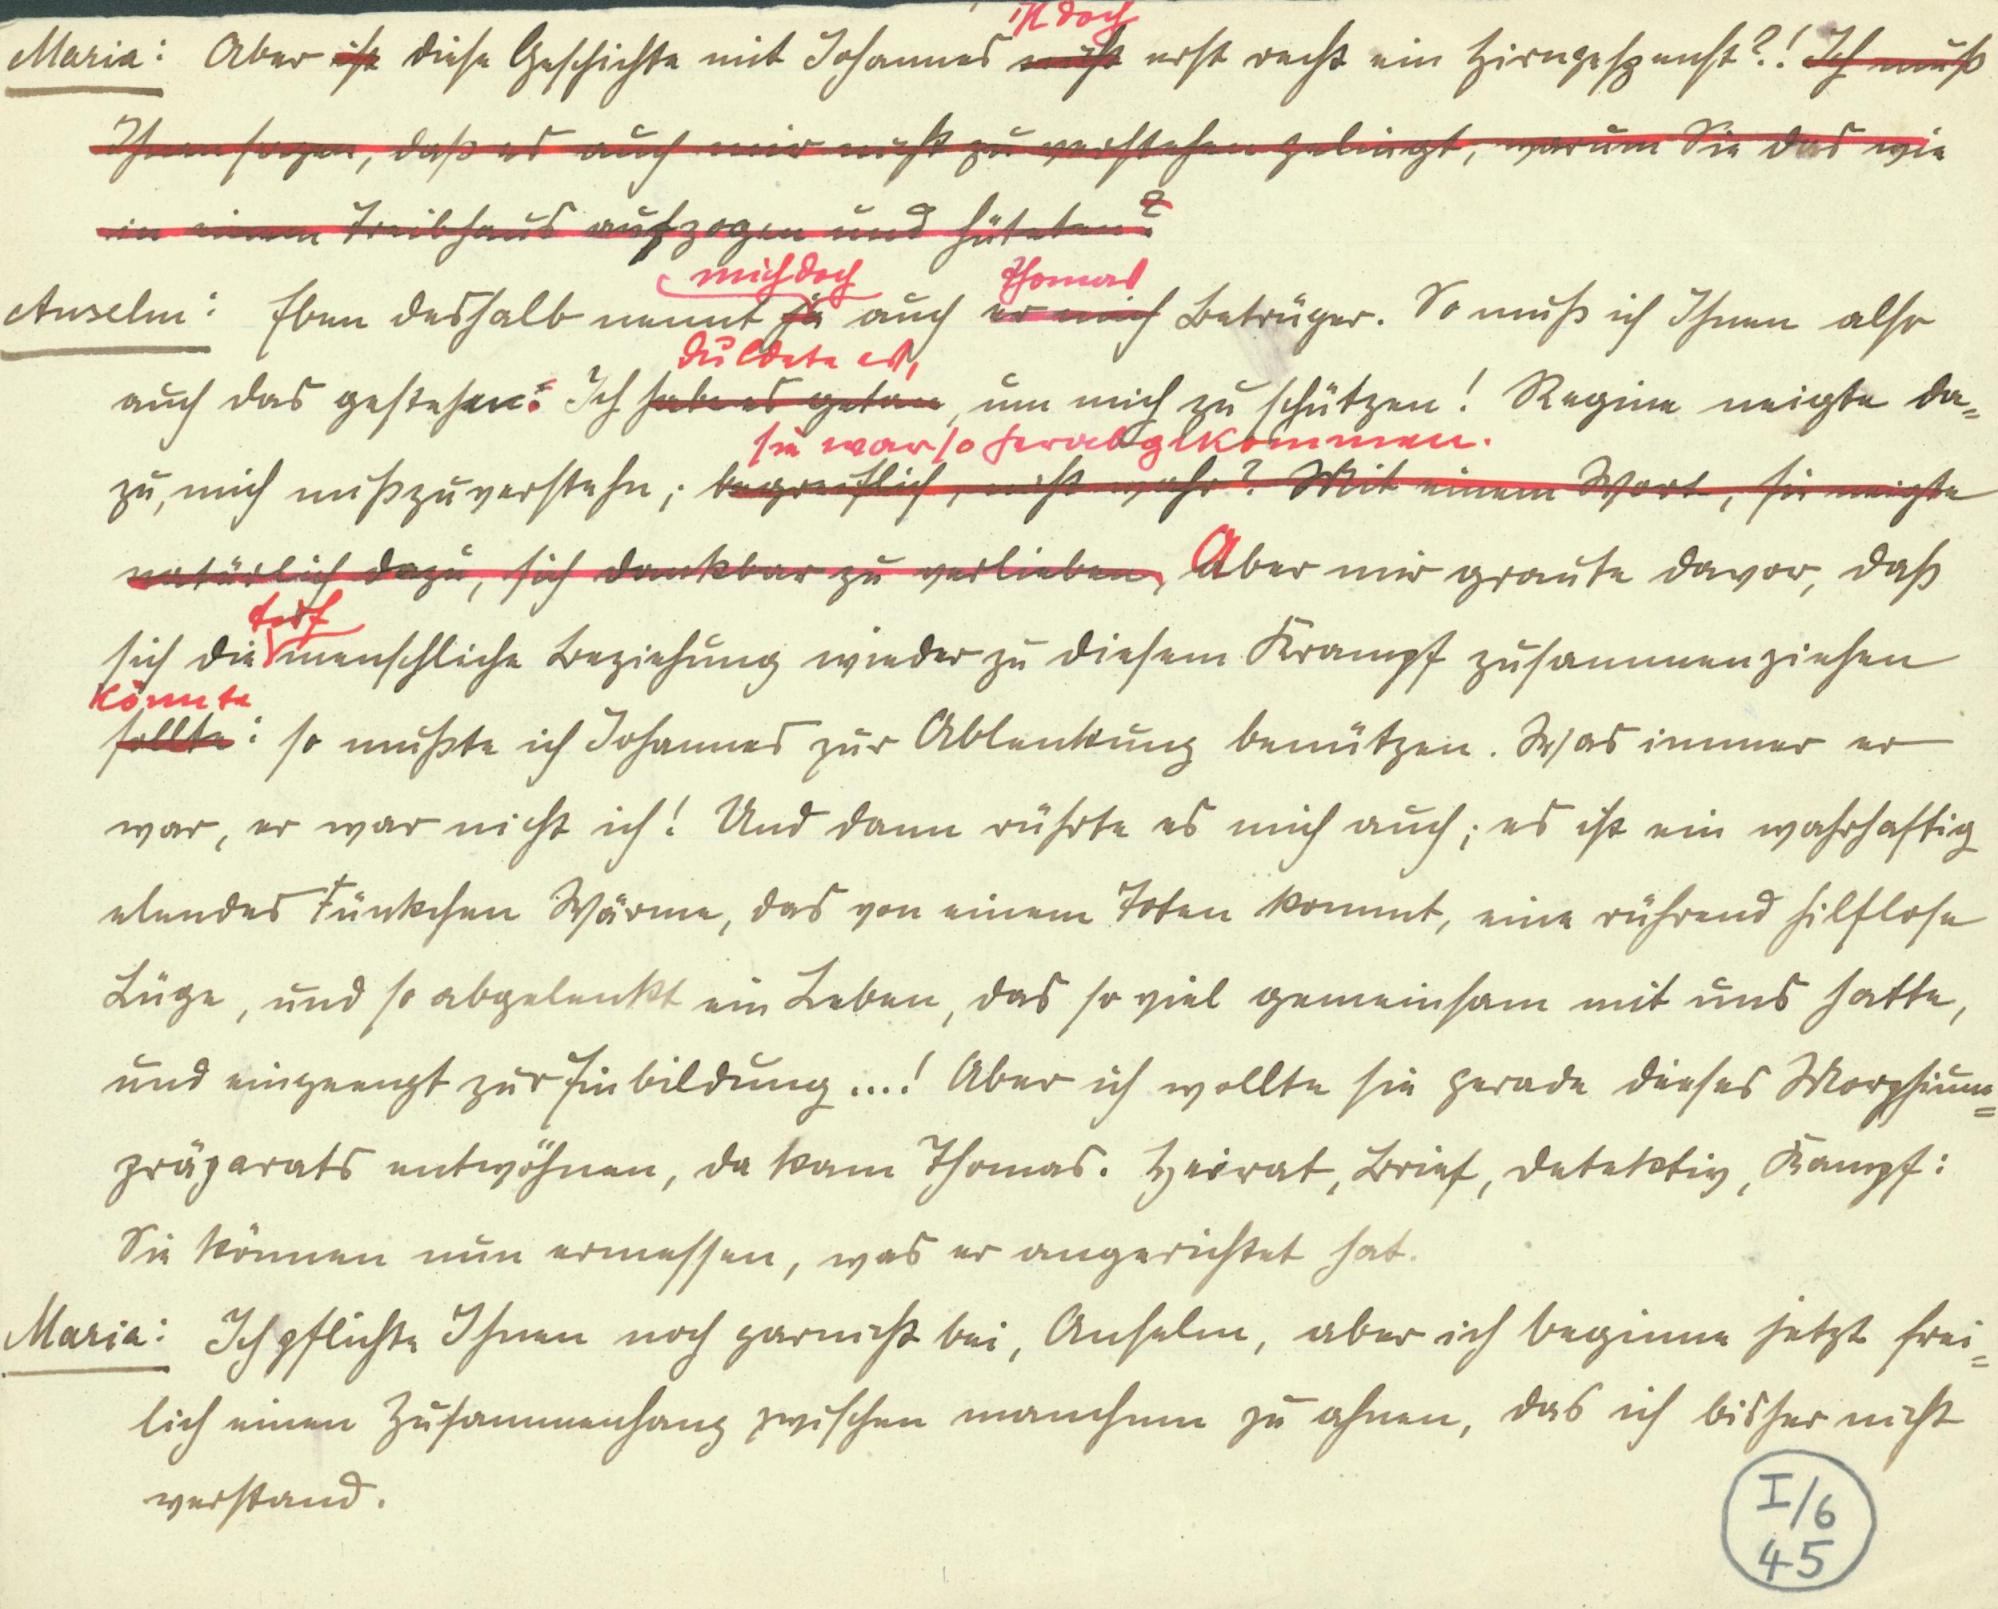 ist doch
Maria: Aber ist diese Geschichte mit Johannes nicht erst recht ein Hirngespenst?! Ich muß
Ihnen sagen, daß es auch mir nicht zu verstehen gelingt, warum Sie das wie
in einem Treibhaus aufzogen und hüteten?
mich doch Thomas
Anselm: Eben deshalb nennt ja auch er mich Betrüger. So muß ich Ihnen also
duldete es,
auch das gestehen: Ich habe es getan, um mich zu schützen! Regine neigte da=
sie war so herabgekommen.
zu, mich mißzuverstehn; begreiflich, nicht wahr? Mit einem Wort, sie neigte
natürlich dazu, sich dankbar zu verlieben, Aber mir graute davor, daß
tief
sich die menschliche Beziehung wieder zu diesem Krampf zusammenziehen
könnte
sollte: so mußte ich Johannes zur Ablenkung benützen. Was immer er
war, er war nicht ich! Und dann rührte es mich auch; es ist ein wahrhaftig
elendes Fünkchen Wärme, das von einem Toten kommt, eine rührend hilflose
Lüge, und so abgelenkt ein Leben, das so viel gemeinsam mit uns hatte,
und eingeengt zur Einbildung ...! Aber ich wollte sie gerade dieses Morphium=
präparats entwöhnen, da kam Thomas. Heirat, Brief, Detektiv, Kampf:
Sie können nun ermessen, was er angerichtet hat.
Maria: Ich pflichte Ihnen noch garnicht bei, Anselm, aber ich beginne jetzt frei=
lich einen Zusammenhang zwischen manchem zu ahnen, das ich bisher nicht
verstand.
I/6
45